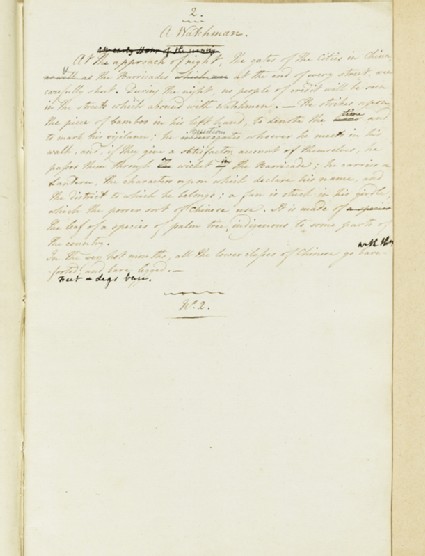 2.
A Watchman.
At the approach of night, the gates of the Cities in China
as well as the Barricades at the end of every street, are
carefully shut. During the night no people of credit will be seen
in the streets which abound with Watchmen, — He strikes upon
the piece of bamboo in his left hand, to denote the time and
to mark his vigilance; he questions whoever he meets in his
walk, and if they give a satisfactory account of themselves, he
passes them through the wicket of the Barricade; he carries a
Lantern, the characters upon which declare his name, and
the district to which he belongs; a fan is stuck in his girdle,
which the poorer sort of Chinese use. It is made of a species
the leaf of a species of palm tree indigenous to some parts of
the country.
In the very hot months, all the lower classes of Chinese go bare
footed and bare legged. —
with their
Feet & legs bare.
No. 2.